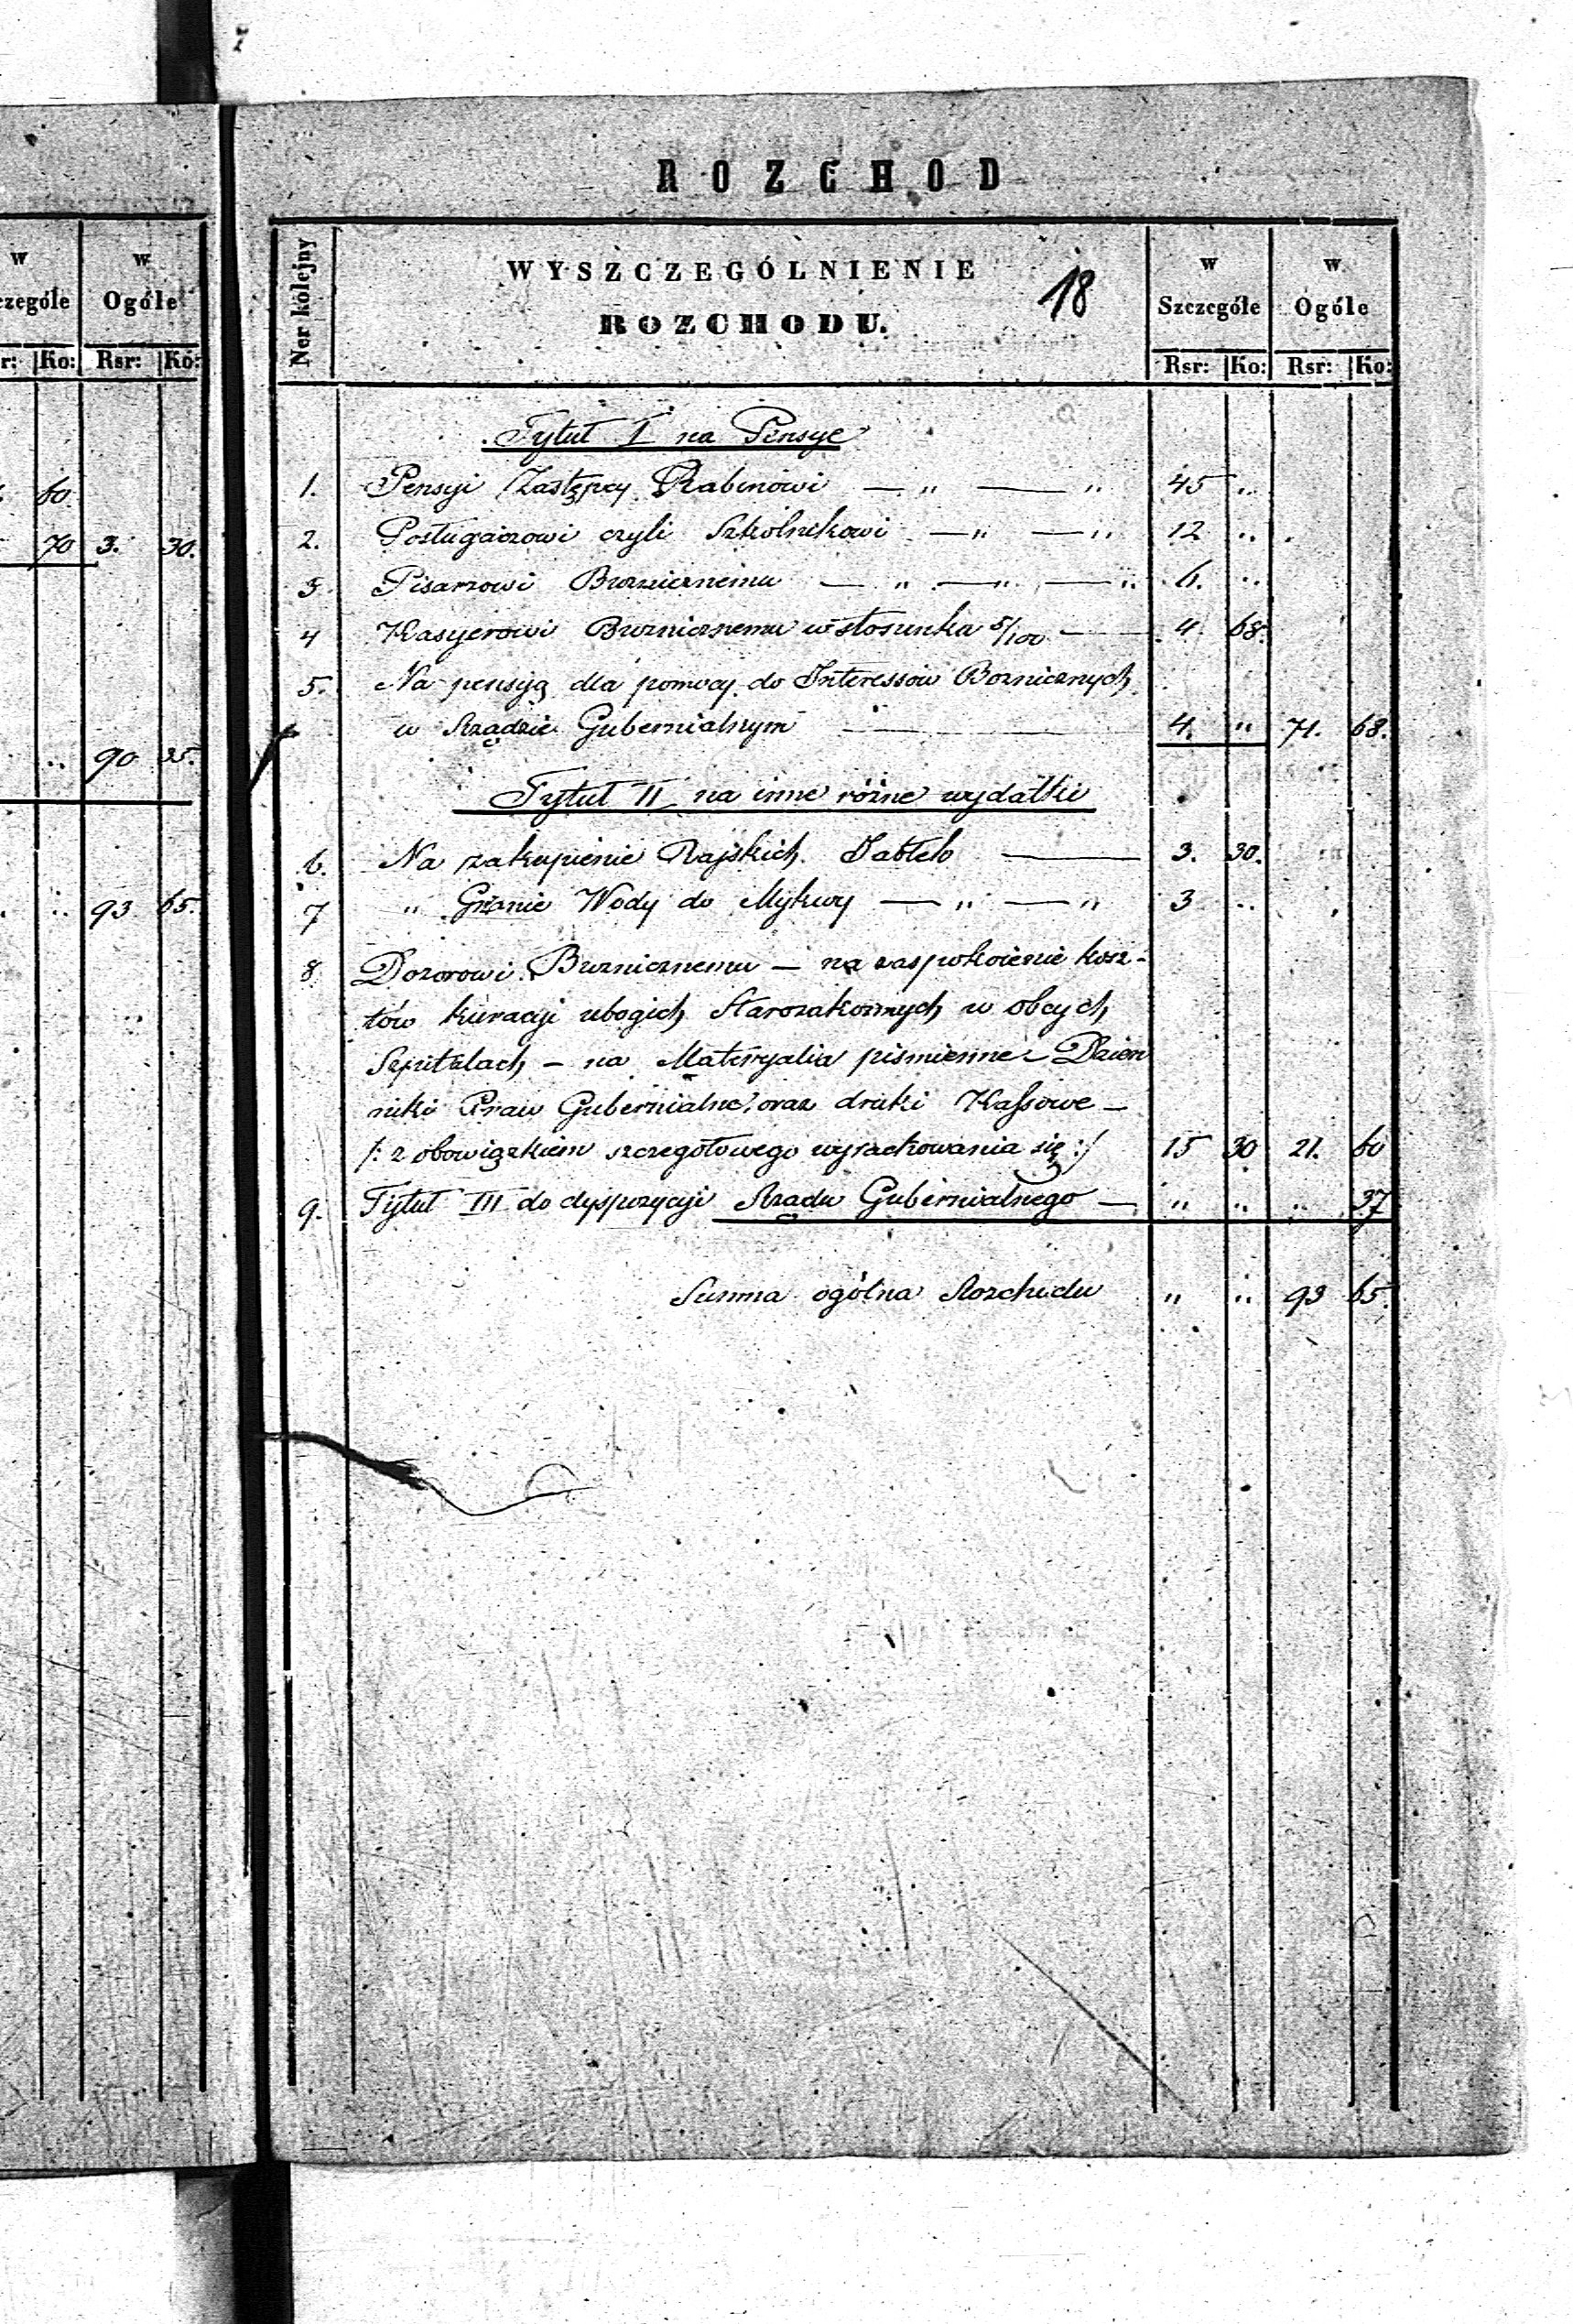 w w
czególe Ogóle
r: Ko: Rsr: Ko:
60.
70 3. 30.
„ 90 35.
„ 93 65.
ROZCHOD
Ner kolejny
WYSZCZEGÓLNIENIE
ROZCHODU.
18
w w
Szczególe Ogóle
Rsr: Ko: Rsr: Ko:
Tytuł I na Pensye
1. Pensyi Zastępcy Rabinowi — „ — „ 45 „
2. Posługaczowi czyli Szkolnikowi — „ — „ 12 „
3 Pisarzowi Buznicznemu — „ — „ — „ 6. „
4 Kasyerowi Buzniczemu w stosunku 5/100 — 4. 68.
5. Na pensyą dla pomocy do Interessów Bozniczných
w Rządzie Gubernialnym — 4. „ 71. 68.
Tytuł II na inne różne wydatki
6. Na zakupienie Rajskich Jabłek — 3. 30.
7 „ Grzanie Wody do Mykwy — „ — „ 3 „
8 Dozorowi Buzniczemu — na zaspokoienie kosz-
tów kuracyi ubogich Starozakonnych w obcych
Szpitalach – na Materyalia pismienne – Dzien
niki Praw Gubernialne, oraz druki Kassowe –
/: z obowiązkiem szczegółowego wyrachowania się :/ 15 30 21. 60
9. Tytuł III do dyspozycyi Rządu Gubernialnego — „ „ „ 37
Summa ogólna Rozchodu „ „ 93 65.